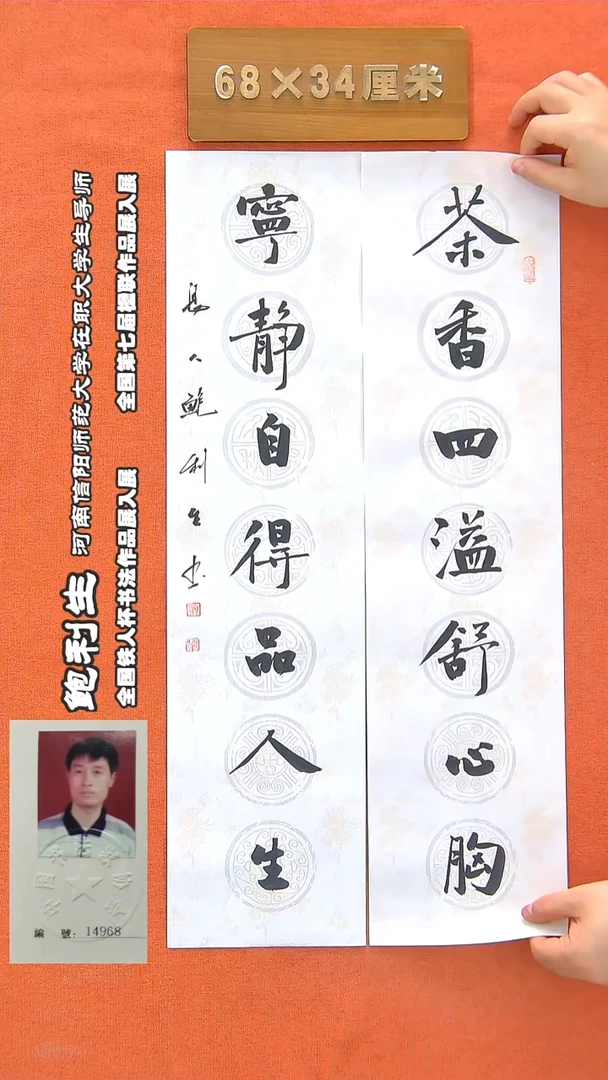 68×34厘米
茶香四溢舒心胸
寧静自得品人生
鮑利生书
鲍利生
河南信阳师范大学在职大学生导师
全国第七届楹联作品展入展
全国铁人杯书法作品展入展
編號：14968